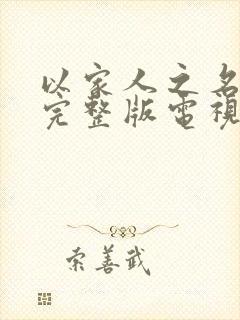 以家人之名
完整版電視
索善武